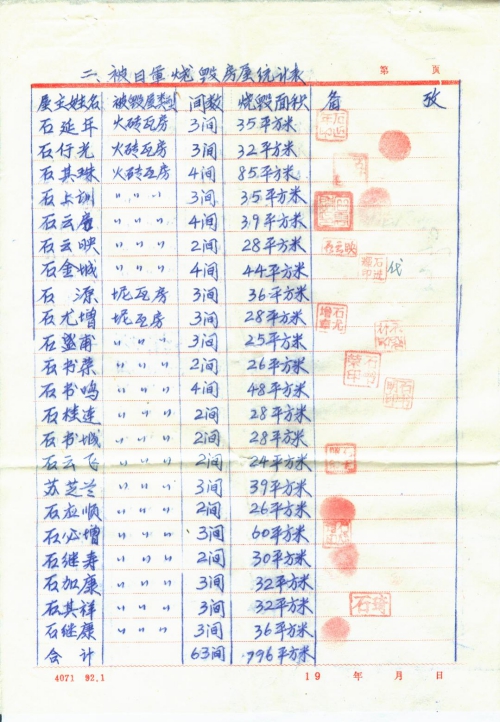 二、被日軍烧毁房屋统计表
第 页
屋主姓名 被毁屋类别 间数 烧毁面积 备 攷
石延年 火砖瓦房 3间 35平方米
石行光 火砖瓦房 3间 32平方米
石其珠 火砖瓦房 4间 85平方米
石上訓 〃 〃 〃 3间 35平方米
石云 〃 〃 〃 4间 39平方米
石云映 〃 〃 〃 2间 28平方米 石云映
石金城 〃 〃 〃 4间 44平方米 代
石 源 坭瓦房 3间 36平方米
石尤增 坭瓦房 3间 28平方米 石尤增章
石盛甫 〃 〃 〃 3间 25平方米
石书荣 〃 〃 〃 2间 26平方米 石书荣印
石书鸣 〃 〃 〃 4间 48平方米
石桂连 〃 〃 〃 2间 28平方米
石书城 〃 〃 〃 2间 28平方米
石云飞 〃 〃 〃 2间 24平方米
苏芝兰 〃 〃 〃 3间 39平方米
石应顺 〃 〃 〃 2间 26平方米
石必增 〃 〃 〃 3间 60平方米
石继寿 〃 〃 〃 2间 30平方米
石加康 〃 〃 〃 3间 32平方米
石其祥 〃 〃 〃 3间 32平方米 石琦
石继康 〃 〃 〃 3间 36平方米
合 计 63间 796平方米
4071 92.1 19 年 月 日